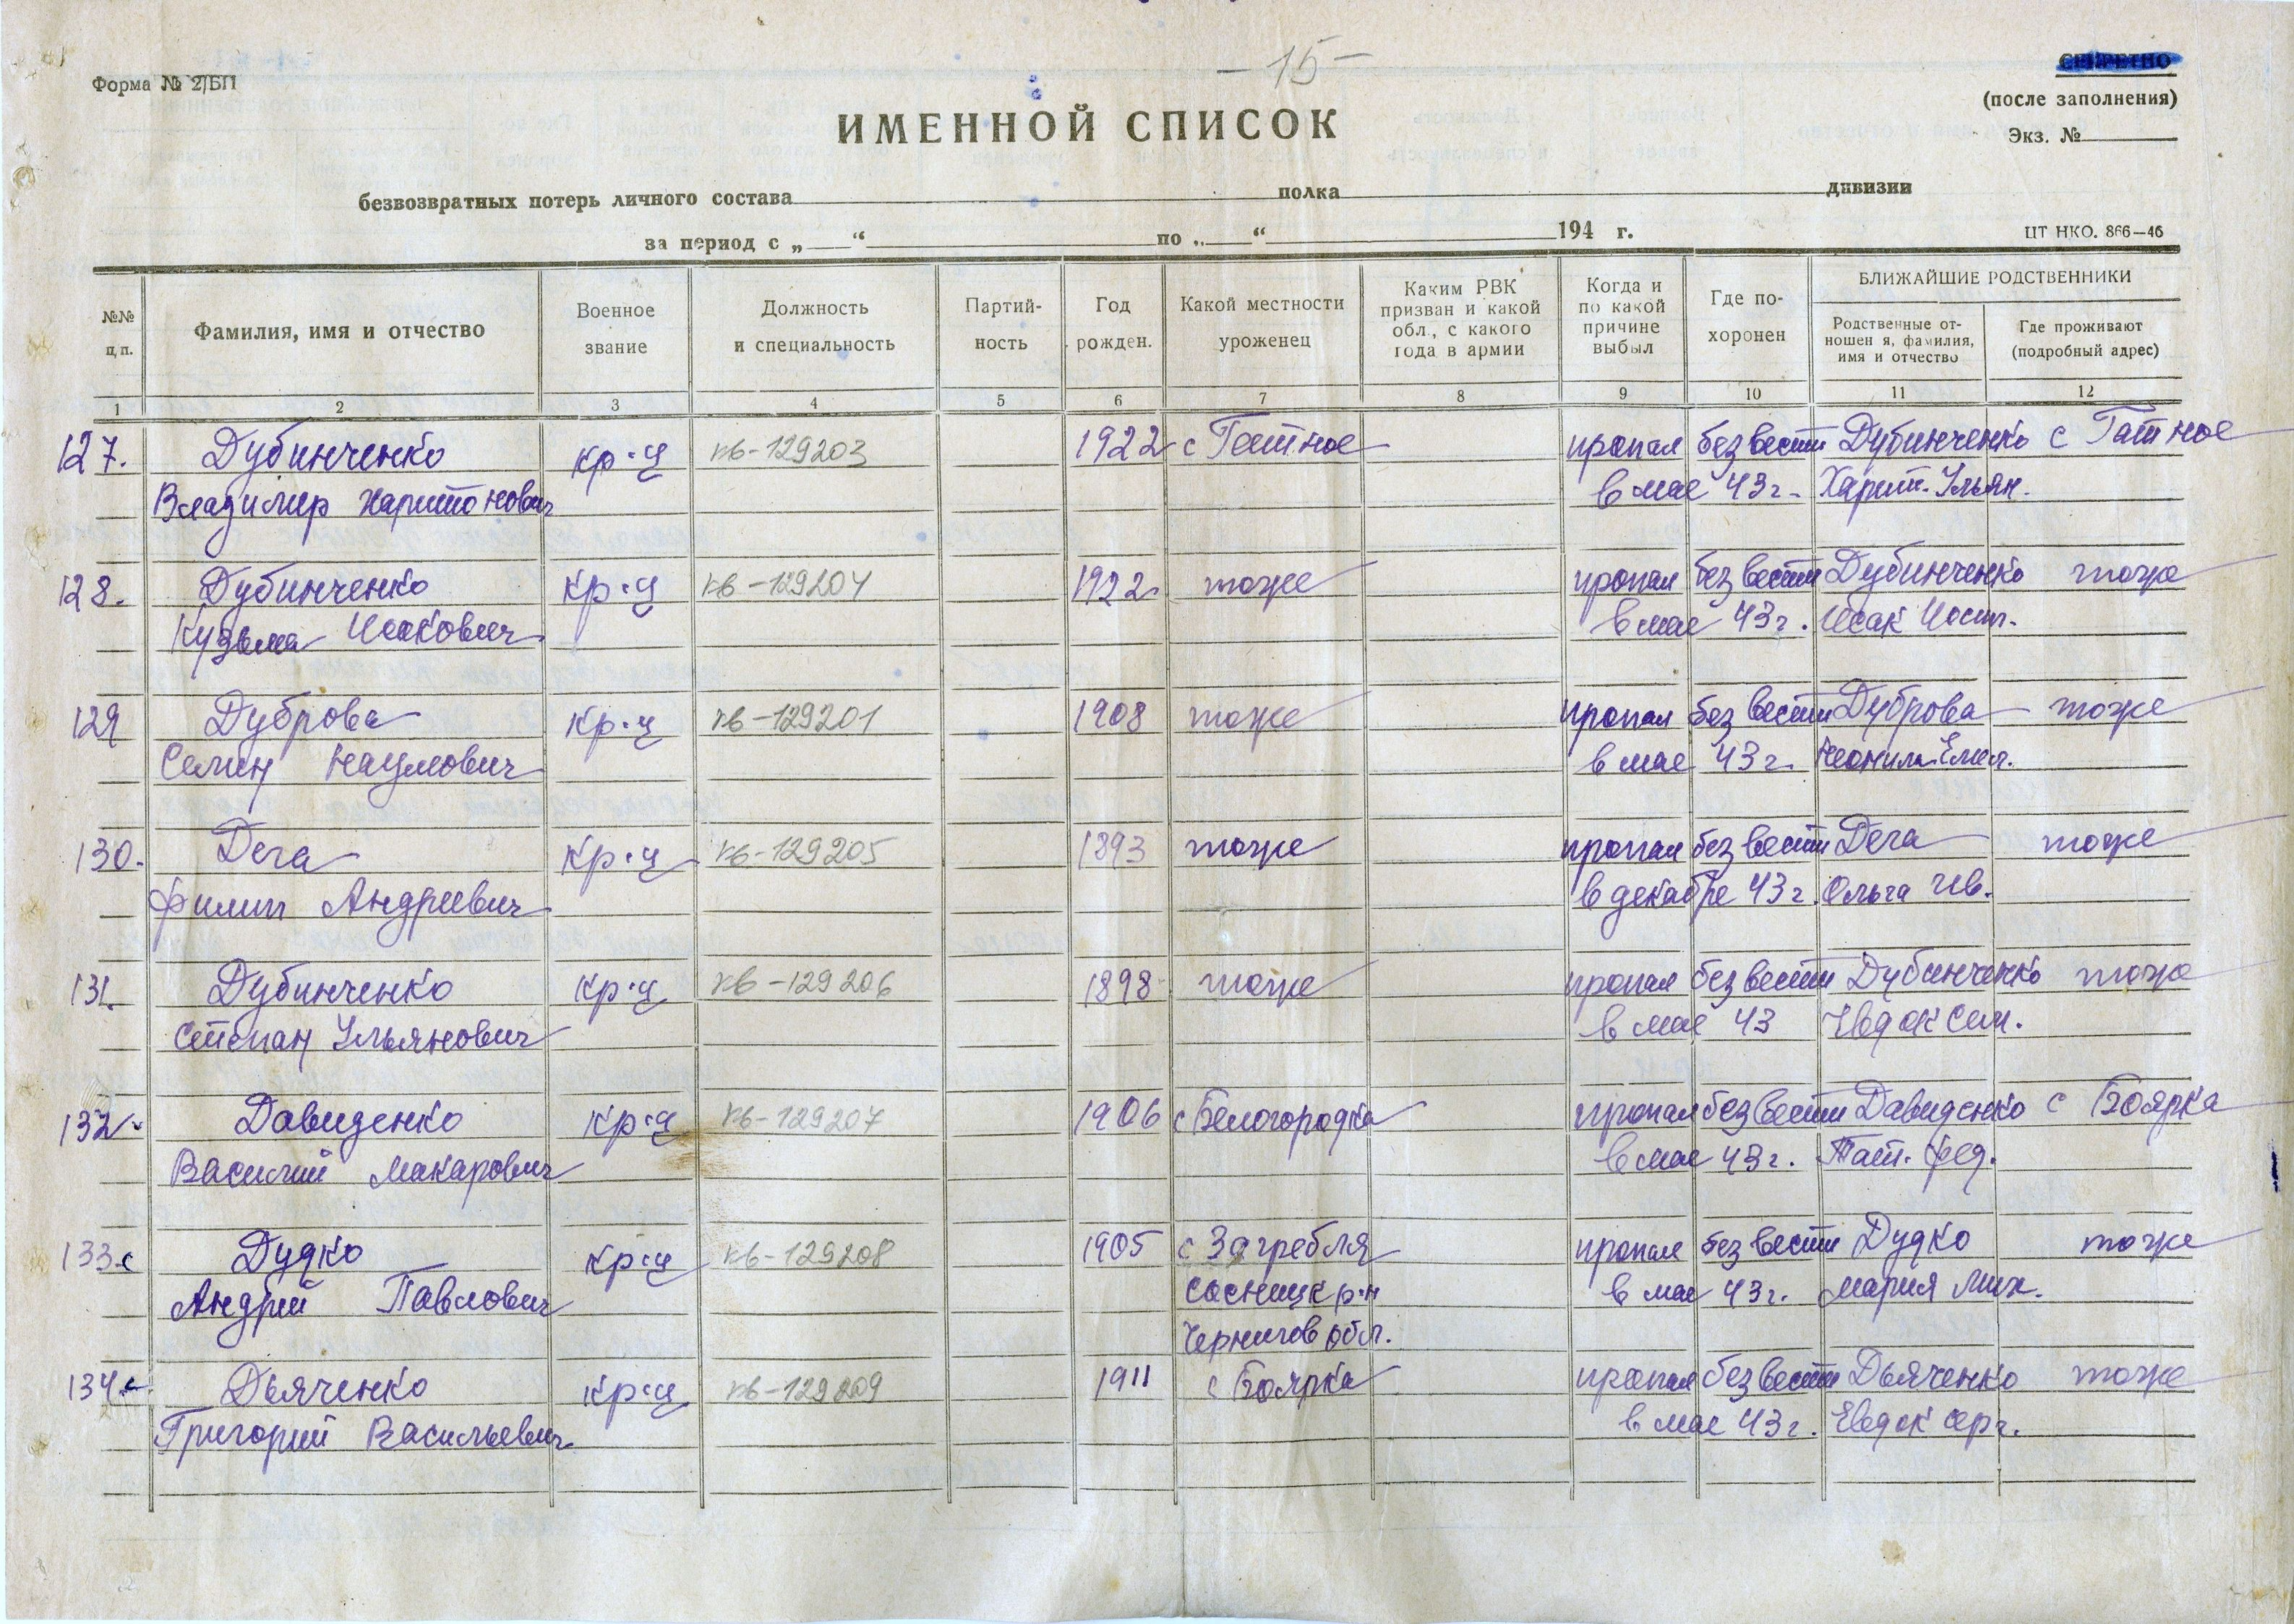 — 15 —
СЕКРЕТНО
Форма № 2/БП
(после заполнения)
ИМЕННОЙ СПИСОК
Экз. №
безвозвратных потерь личного состава полка дивизии
за период с „ “ по „ “ 194 г.
ЦТ НКО. 866—46
№№ п.п.
Фамилия, имя и отчество
Военное звание
Должность и специальность
Партий-
ность
Год рожден.
Какой местности уроженец
Каким РВК призван и какой обл., с какого года в армии
Когда и по какой причине выбыл
Где по-
хоронен
БЛИЖАЙШИЕ РОДСТВЕННИКИ
Родственные от-
ношен я, фамилия, имя и отчество
Где проживают (подробный адрес)
1 2 3 4 5 6 7 8 9 10 11 12
127. Дубинченко кр-ц кв-129203 1922 с Гатное пропал без вести Дубинченко с Гатное
Владимир Харитонович в мае 43 г. Харит. Ульян.
128. Дубинченко кр-ц кв-129204 1922 тоже пропал без вести Дубинченко тоже
Кузьма Исакович в мае 43 г. Исак Иосип.
129 Дуброва кр-ц кв-129201 1908 тоже пропал без вести Дуброва тоже
Семен Наумович в мае 43 г. Неонила Емел.
130. Дега кр-ц кв-129205 1893 тоже пропал без вести Дега тоже
Филип Андреевич в декабре 43 г. Ольга Ив.
131. Дубинченко кр-ц кв-129206 1898 тоже пропал без вести Дубинченко тоже
Степан Ульянович в мае 43 Явдок Сем.
132 Давиденко кр-ц кв-129207 1906 с Белогородка пропал без вести Давиденко с Боярка
Василий Макарович в мае 43 г. Тат. Фед.
133. Дудко кр-ц кв-129208 1905 с Загребля пропал без вести Дудко тоже
Андрий Павлович Сосницк р-н в мае 43 г. Мария Мих.
Чернигов обл.
134. Дьяченко кр-ц кв-129209 1911 с Боярка пропал без вести Дьяченко тоже
Григорий Васильевич в мае 43 г. Евдок Серг.